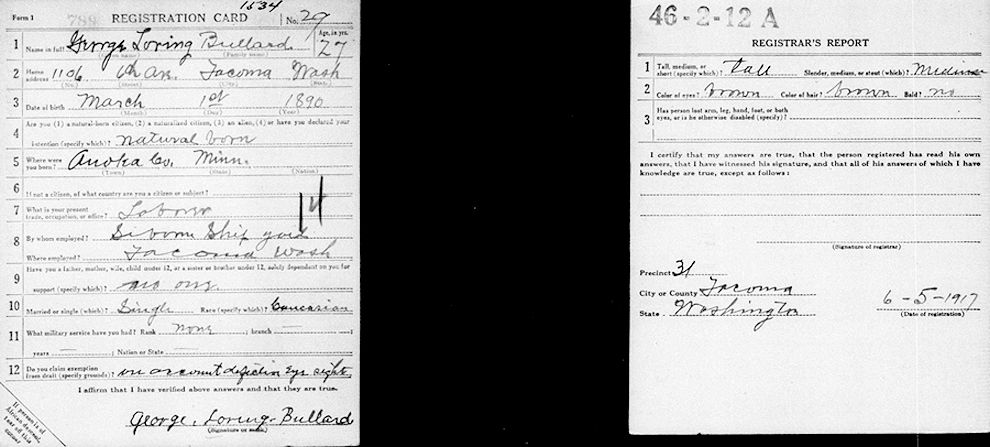 1534
Form 1 REGISTRATION CARD No. 29
1 Name in full George Loring Bullard Age, in yrs. 27
(Given name) (Family name)
2 Home address 1106 6th Av. Tacoma Wash
(No.) (Street) (City) (State)
3 Date of birth March 1st 1890
(Month) (Day) (Year)
Are you (1) a natural-born citizen, (2) a naturalized citizen, (3) an alien, (4) or have you declared your
4 intention (specify which)? natural born
5 Where were you born? Anoka Co. Minn.
(Town) (State) (Nation)
6 If not a citizen, of what country are you a citizen or subject?
7 What is your present trade, occupation, or office? Laborer 14
8 By whom employed? Ship yard
Where employed? Tacoma Wash
9 Have you a father, mother, wife, child under 12, or a sister or brother under 12, solely dependent on you for
support (specify which)? no one
10 Married or single (which)? Single Race (specify which)? Caucasian
11 What military service have you had? Rank none ; branch — ;
years — ; Nation or State —
12 Do you claim exemption from draft (specify grounds)? on account defective Eye sight
I affirm that I have verified above answers and that they are true.
George. Loring. Bullard
(Signature or mark)
If person is of African descent, tear off this corner
46-2-12 A
REGISTRAR'S REPORT
1 Tall, medium, or short (specify which)? Tall Slender, medium, or stout (which)? Medium
2 Color of eyes? brown Color of hair? brown Bald? no
3 Has person lost arm, leg, hand, foot, or both eyes, or is he otherwise disabled (specify)?
I certify that my answers are true, that the person registered has read his own
answers, that I have witnessed his signature, and that all of his answers of which I have
knowledge are true, except as follows:
(Signature of registrar)
Precinct 31
City or County Tacoma
State Washington
6-5-1917
(Date of registration)